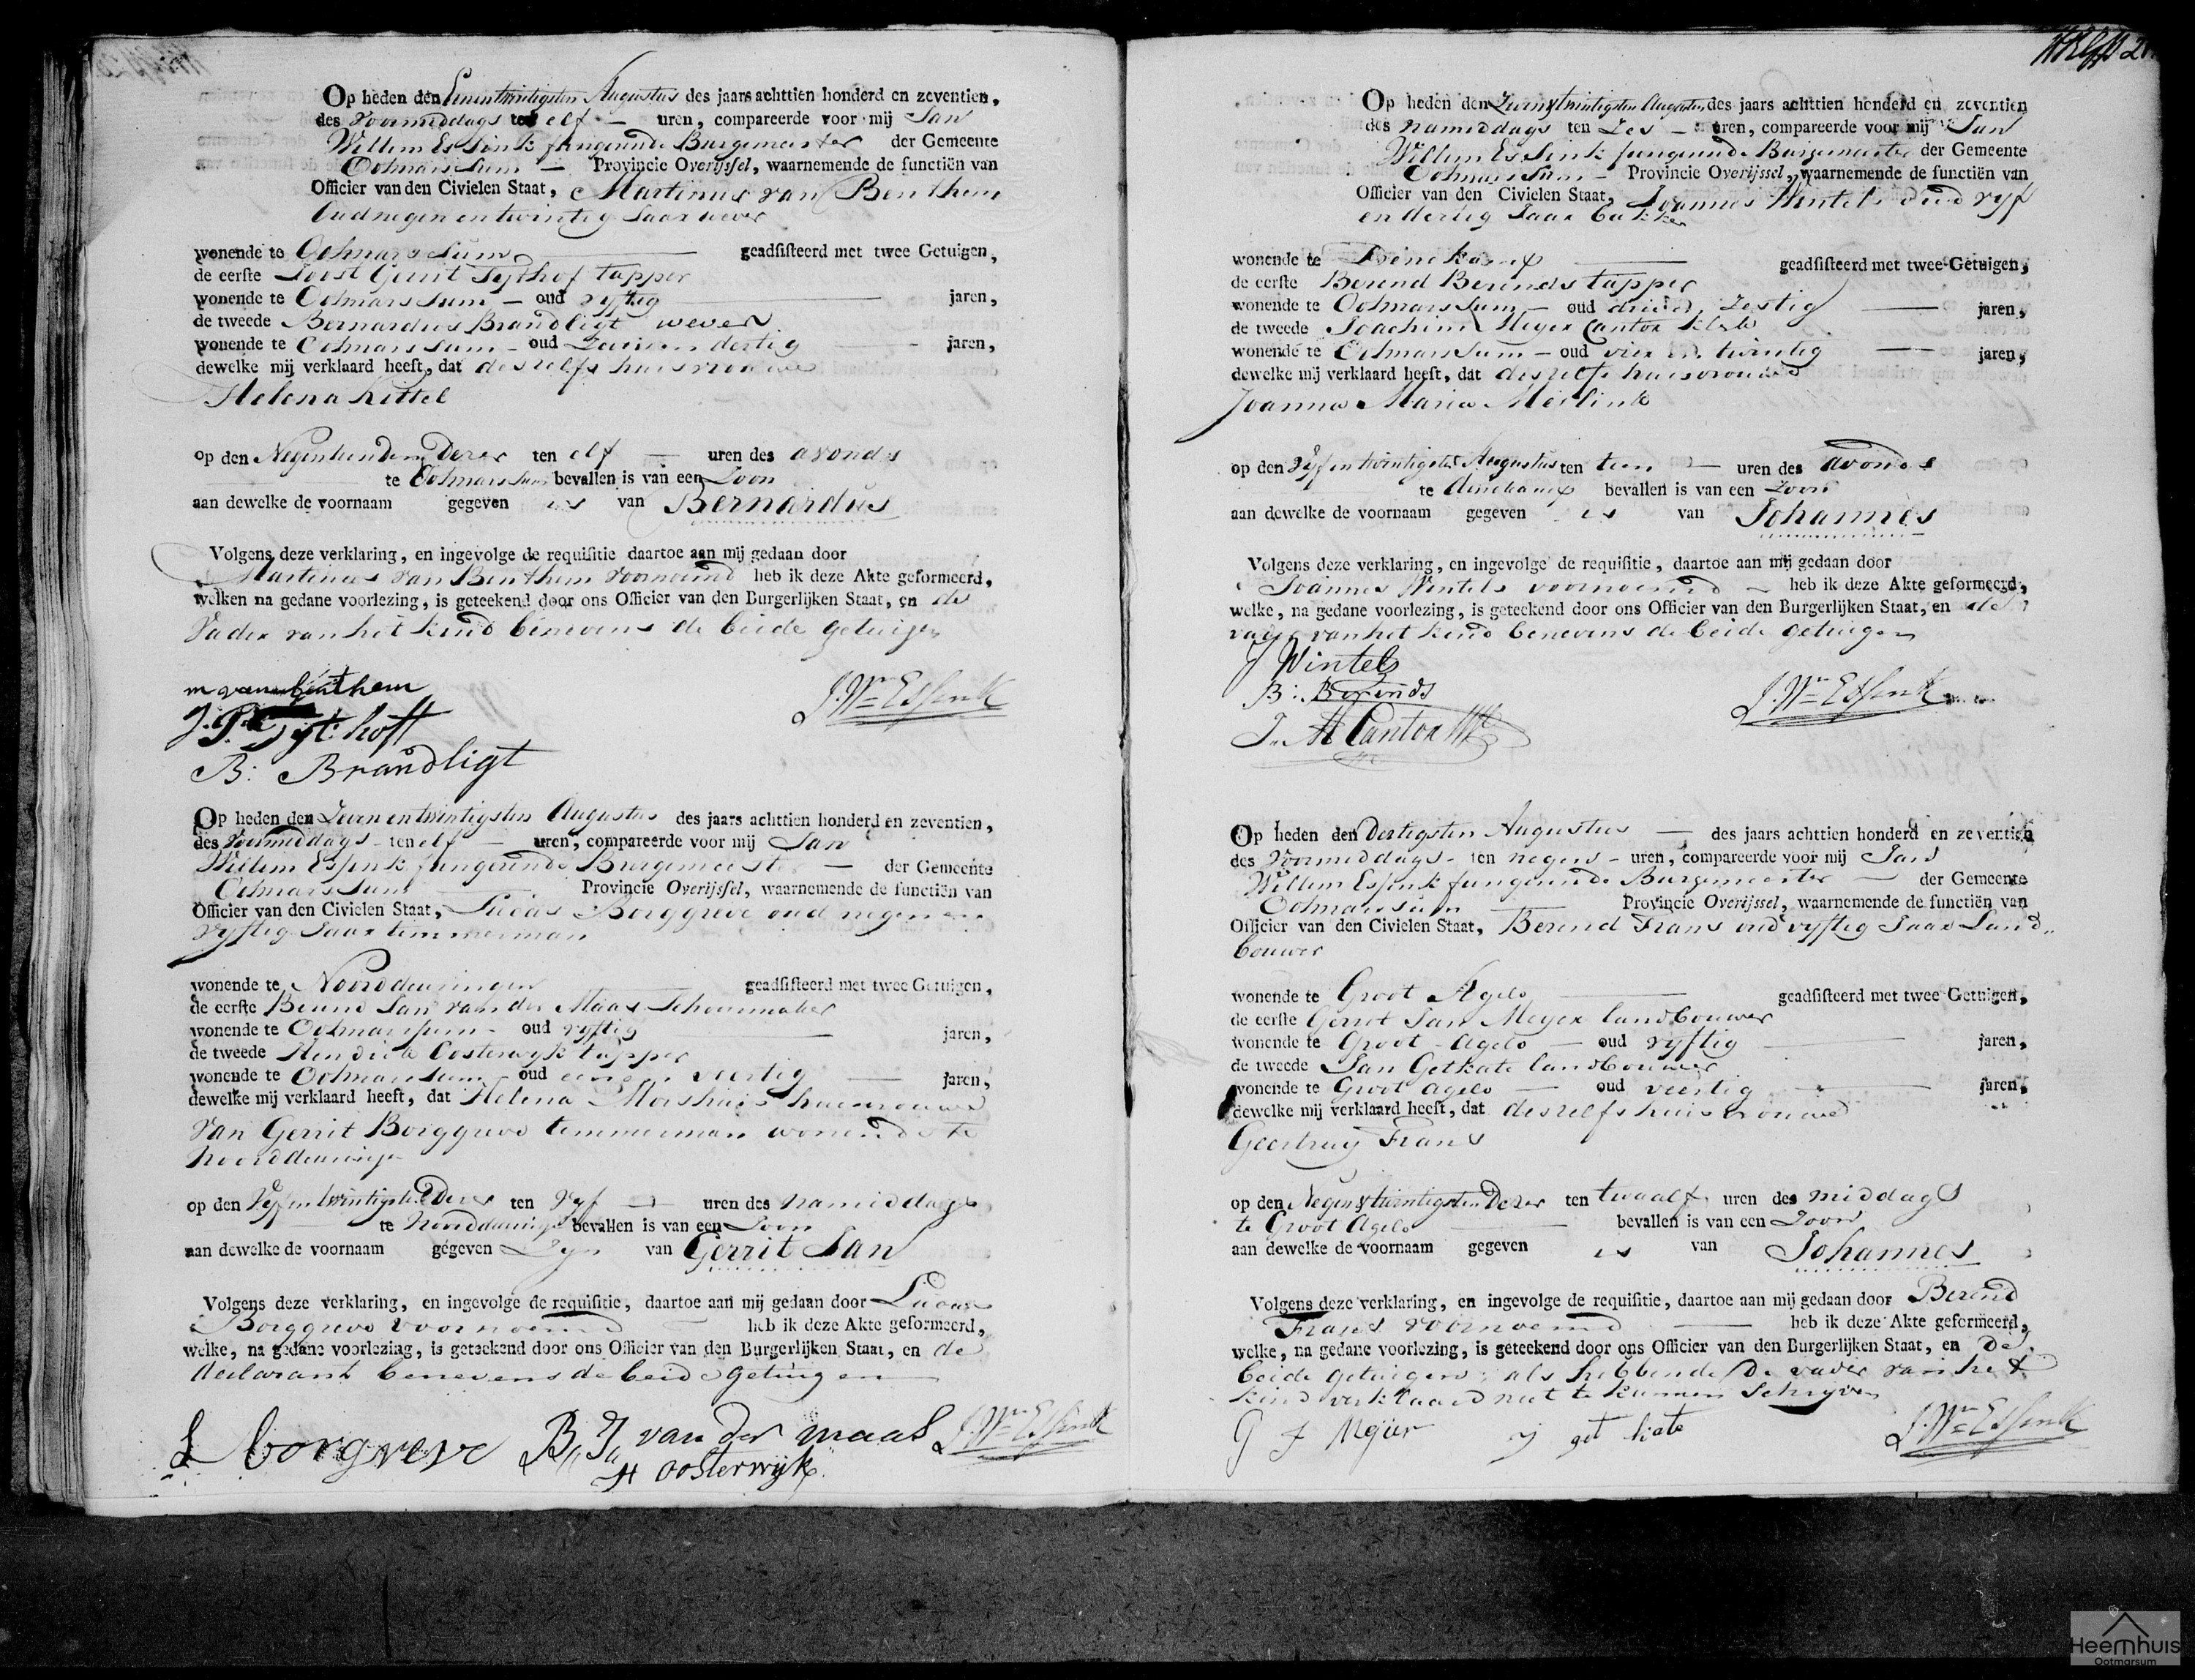 Op heden den Eenentwintigsten Augustus des jaars achttien honderd en zeventien,
des voormiddags ten elf uren, compareerde voor mij Jan
Willem Essink fungeerende Burgemeester der Gemeente
Ootmarssum Provincie Overijssel, waarnemende de functiën van
Officier van den Civielen Staat, Martinus van Benthem
Oud negen en twintig Jaar wever
wonende te Ootmarssum geadsisteerd met twee Getuigen,
de eerste Joost Gerrit Tythof tapper
wonende te Ootmarssum oud vyftig jaren,
de tweede Bernardus Brandligt wever
wonende te Ootmarssum oud dertig jaren,
dewelke mij verklaard heeft, dat deszelfs huisvrouwe
Helena Kittel
op den Negentienden Dezer ten elf uren des avonds
te Ootmarssum bevallen is van een Zoon
aan dewelke de voornaam gegeven is van Bernardus
Volgens deze verklaring, en ingevolge de requisitie daartoe aan mij gedaan door
Martinus van Benthem voornoemd heb ik deze Akte geformeerd,
welken na gedane voorlezing, is geteekend door ons Officier van den Burgerlijken Staat, en de
Vader van het kind benevens de beide getuigen
m van benthem
J. Wm Essink
J: Tyt: hoft
B: Brandligt
Op heden den Zeven entwintigsten Augustus des jaars achttien honderd en zeventien,
des Voormiddags ten elf uren, compareerde voor mij Jan
Willem Essink fungeerende Burgemeester der Gemeente
Ootmarssum Provincie Overijssel, waarnemende de functiën van
Officier van den Civielen Staat, Lucas Borggreve oud negen en
vyftig Jaar timmerman
wonende te Noorddeurningen geadsisteerd met twee Getuigen,
de eerste Berend Jan van der Maas Schoenmaker
wonende te Ootmarssum oud vyftig jaren,
de tweede Hendrik Oosterwyk tapper
wonende te Ootmarssum oud een en veertig jaren,
dewelke mij verklaard heeft, dat Helena Morshuis huisvrouwe
Van Gerrit Borggreve timmerman wonende te
Noorddeuringe
op den Vyfentwintigsten Dezer ten vyf uren des namiddags
te Noorddeuringe bevallen is van een Zoon
aan dewelke de voornaam gegeven Zyn van Gerrit Jan
Volgens deze verklaring, en ingevolge de requisitie, daartoe aan mij gedaan door Lucas
Borggreve voornoemd heb ik deze Akte geformeerd,
welke, na gedane voorlezing, is geteekend door ons Officier van den Burgerlijken Staat, en de
declarant benevens de beide getuigen
L borgreve B: J: van der maas J. Wm Essink
H oosterwijk
Op heden den Zeven & twintigsten Augustus des jaars achttien honderd en zeventien
des namiddags ten Zes uren, compareerde voor mij Jan
Willem Essink fungeerende Burgemeester der Gemeente
Ootmarssum Provincie Overijssel, waarnemende de functiën van
Officier van den Civielen Staat, Joannes Wintels oud vyf
en dertig Jaar bakker
wonende te Denekamp geadsisteerd met twee Getuigen,
de eerste Berend Berends tapper
wonende te Ootmarssum oud zestig jaren,
de tweede Joachim Meyer Cantor
wonende te Ootmarssum oud vier en twintig jaren,
dewelke mij verklaard heeft, dat deszelfs huisvrouwe
Joanna Maria Meilink
op den Vyfentwintigsten Augustus ten tien uren des avonds
te denekamp bevallen is van een zoon
aan dewelke de voornaam gegeven is van Johannes
Volgens deze verklaring, en ingevolge de requisitie, daartoe aan mij gedaan door
Joannes Wintels voornoemd heb ik deze Akte geformeerd,
welke, na gedane voorlezing, is geteekend door ons Officier van den Burgerlijken Staat, en de
vader van het kind benevens de beide getuigen
J Wintels
B: Berends
J. Wm Essink
J. M Cantor
Op heden den dertigsten Augustus des jaars achttien honderd en zeventien
des Voormiddags ten negen uren, compareerde voor mij Jan
Willem Essink fungeerende Burgemeester der Gemeente
Ootmarssum Provincie Overijssel, waarnemende de functiën van
Officier van den Civielen Staat, Berend Frans oud vyftig Jaar Land
bouwer
wonende te Groot Agelo geadsisteerd met twee Getuigen,
de eerste Gerrit Jan Meyer landbouwer
wonende te Groot Agelo oud vyftig jaren,
de tweede Jan Getkate landbouwer
wonende te Groot Agelo oud veertig jaren,
dewelke mij verklaard heeft, dat deszelfs huisvrouwe
Geertruy Frans
op den Negen & twintigsten Dezer ten twaalf uren des middags
te Groot Agelo bevallen is van een Zoon
aan dewelke de voornaam gegeven is van Johannes
Volgens deze verklaring, en ingevolge de requisitie, daartoe aan mij gedaan door Berend
Frans voornoemd heb ik deze Akte geformeerd,
welke, na gedane voorlezing, is geteekend door ons Officier van den Burgerlijken Staat, en De
beide getuigen als hebbende de vader van het
kind verklaard niet te kunnen Schryven
G J Meijer J get kate J. Wm Essink
Heemhuis
Ootmarsum